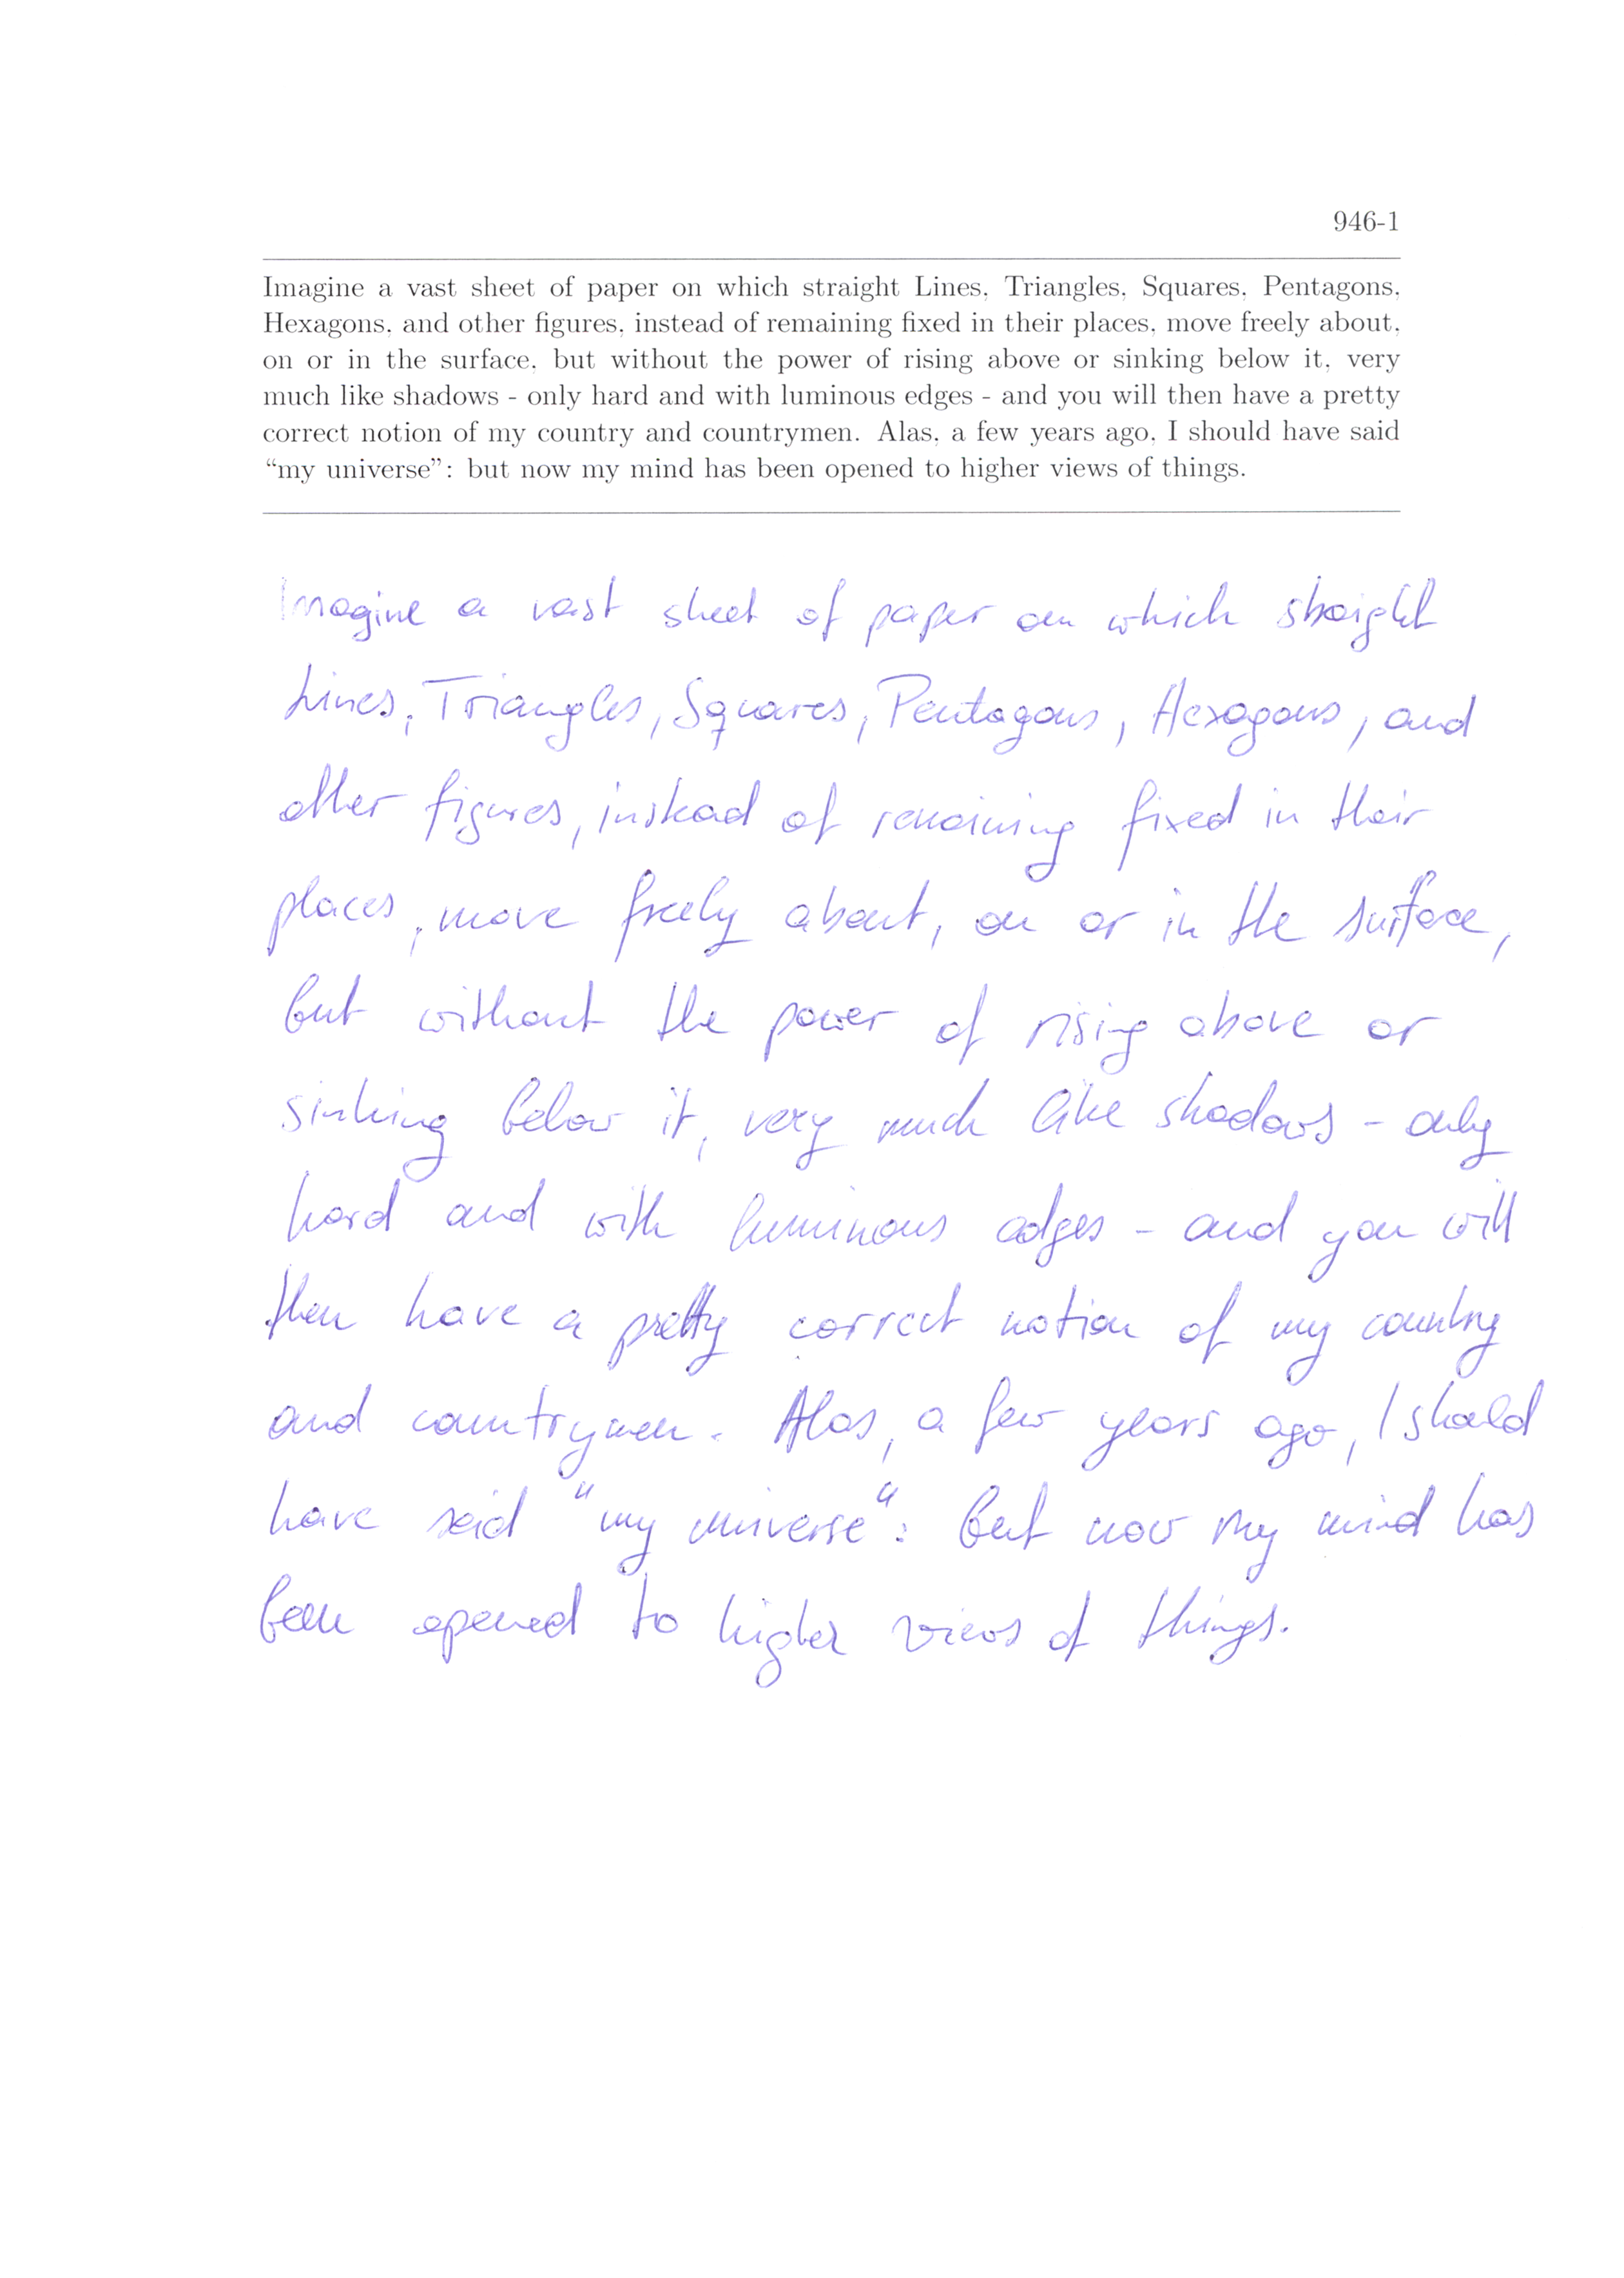 946-1
Imagine a vast sheet of paper on which straight Lines, Triangles, Squares, Pentagons,
Hexagons, and other figures, instead of remaining fixed in their places, move freely about,
on or in the surface, but without the power of rising above or sinking below it, very
much like shadows - only hard and with luminous edges - and you will then have a pretty
correct notion of my country and countrymen. Alas, a few years ago, I should have said
“my universe”: but now my mind has been opened to higher views of things.
Imagine a vast sheet of paper on which straight
Lines, Triangles, Squares, Pentagons, Hexagons, and
other figures, instead of remaining fixed in their
places, move freely about, on or in the surface,
but without the power of rising above or
sinking below it, very much like shadows - only
hard and with luminous edges - and you will
then have a pretty correct notion of my country
and countrymen. Alas, a few years ago, I should
have said “my universe“: but now my mind has
been opened to higher views of things.